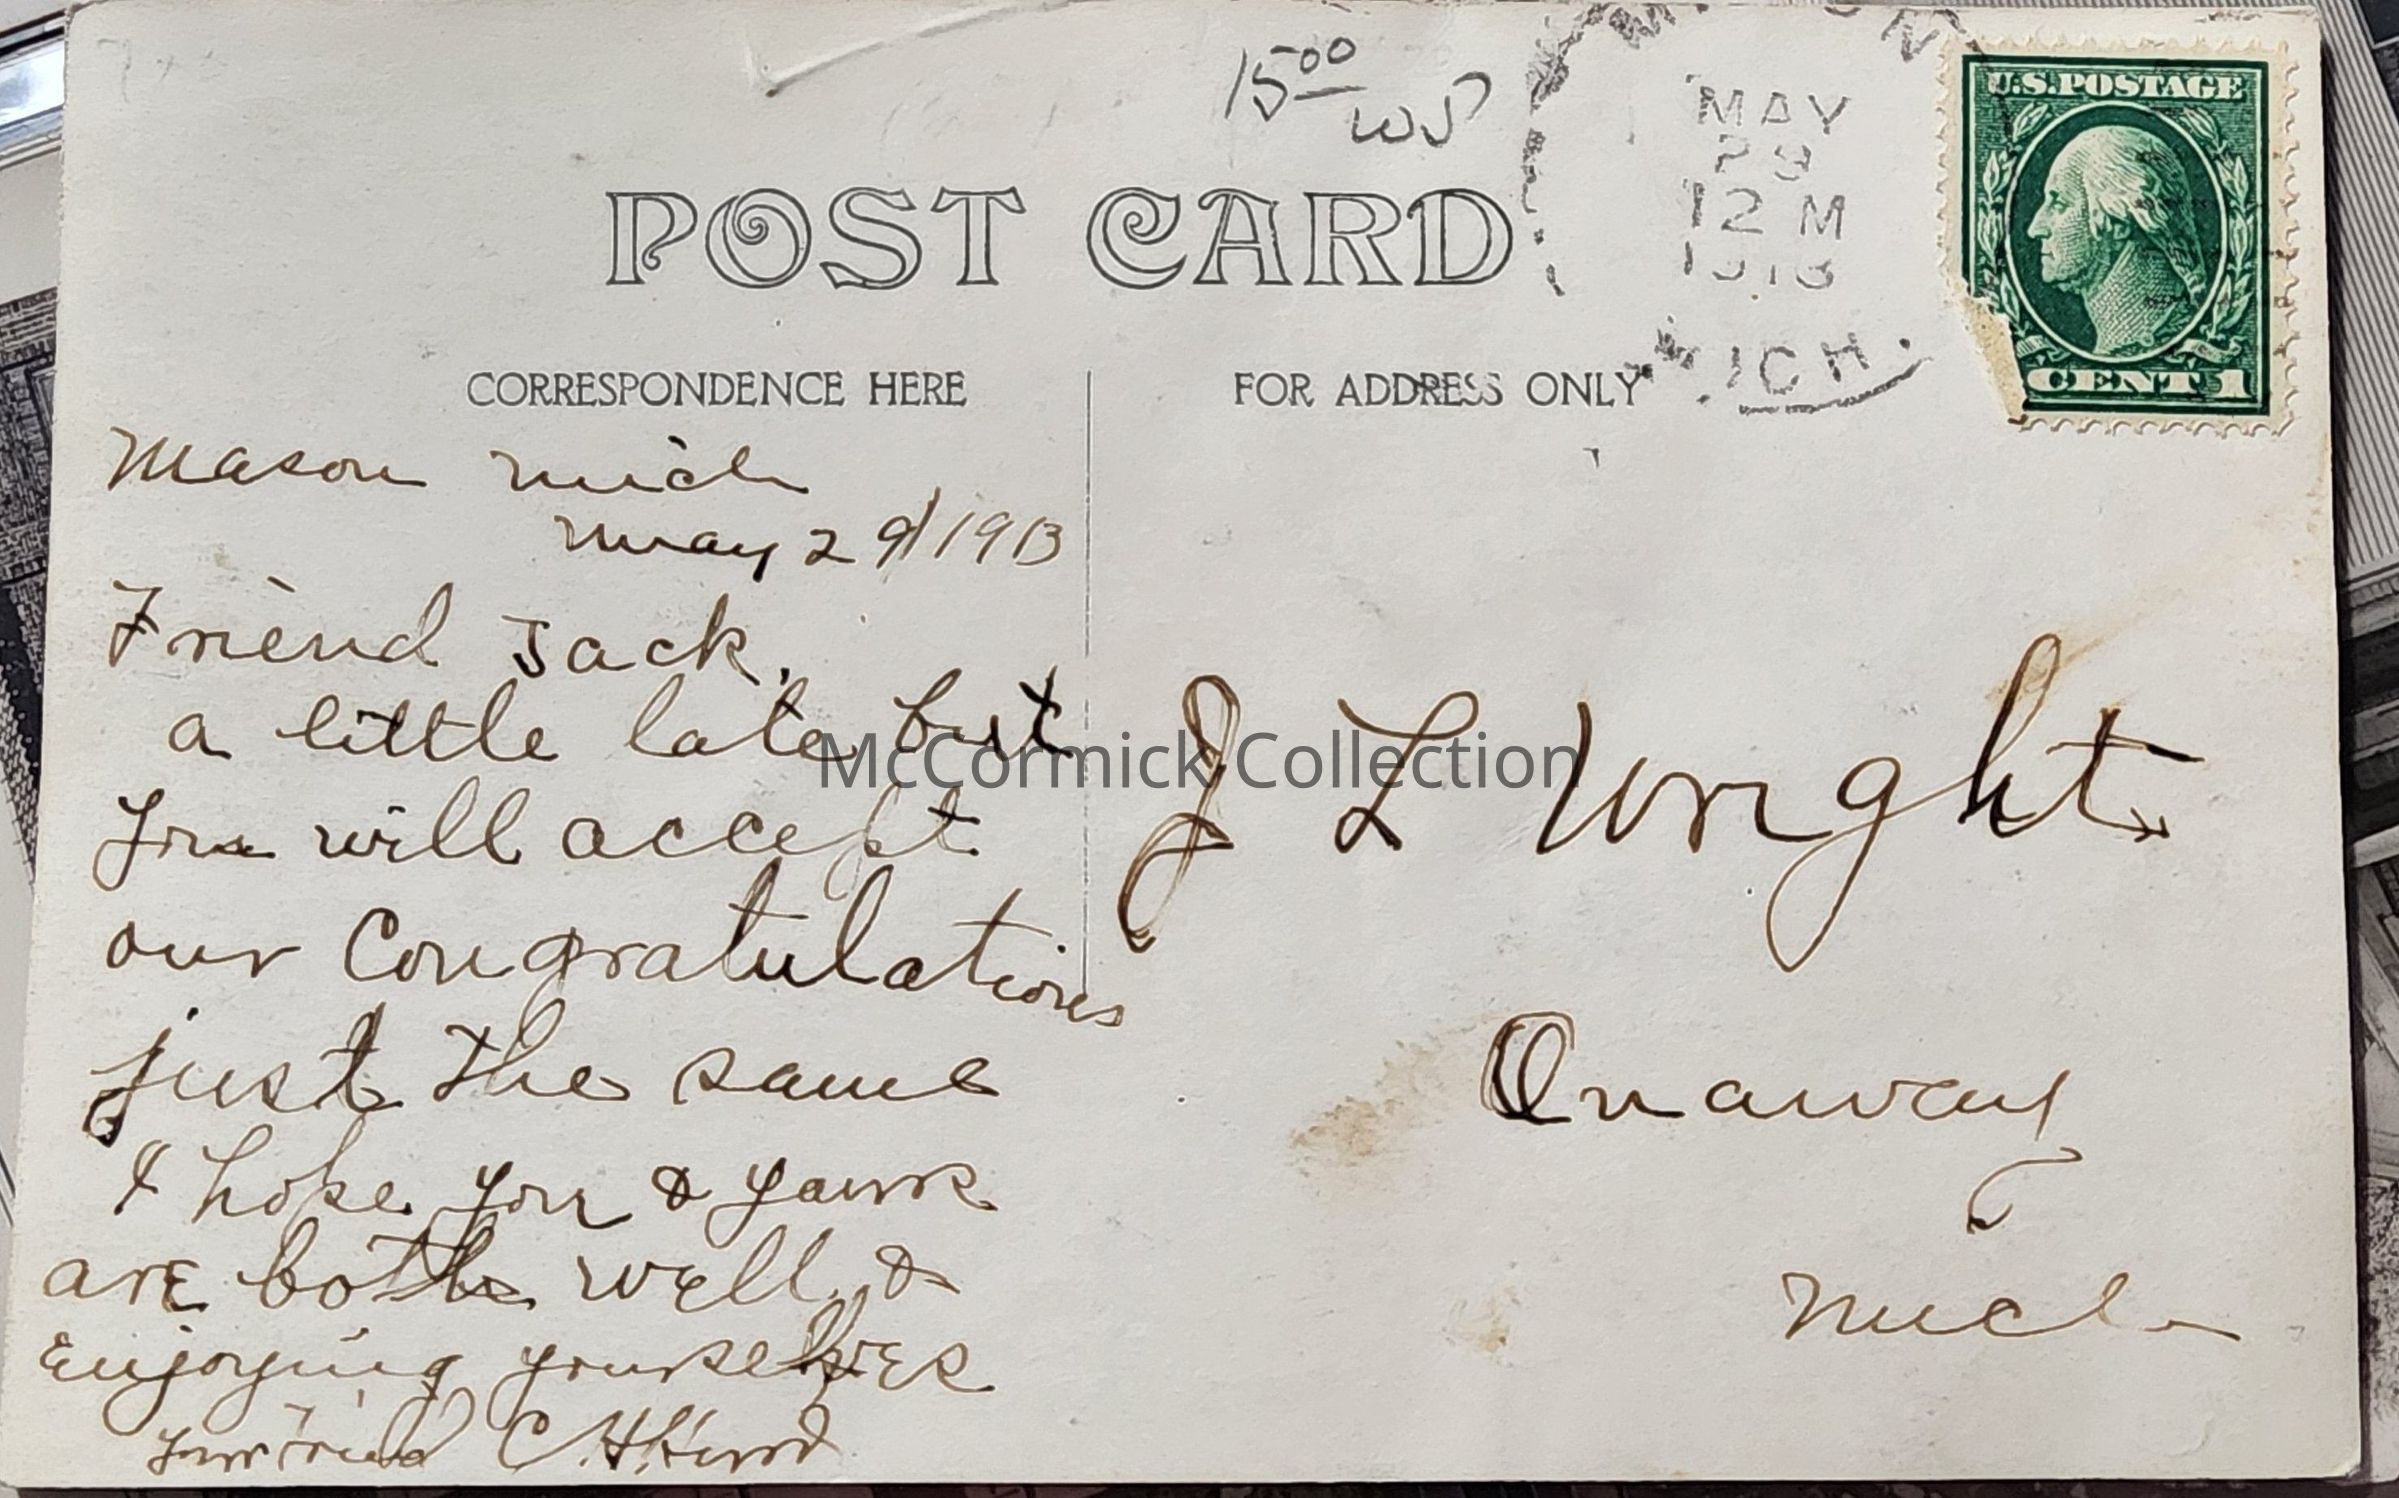 15 00
WS
MAY
29
12 M
1913
MICH.
U.S. POSTAGE
1 CENT 1
POST CARD
CORRESPONDENCE HERE
FOR ADDRESS ONLY
Mason Mich
May 29/1913
Friend Jack,
a little late but
you will accept
our Congratulations
just the same
I hope you &
are both well &
Enjoying yourselves
Your Friend C H
J L Wright
Onaway
Mich
McCormick Collection